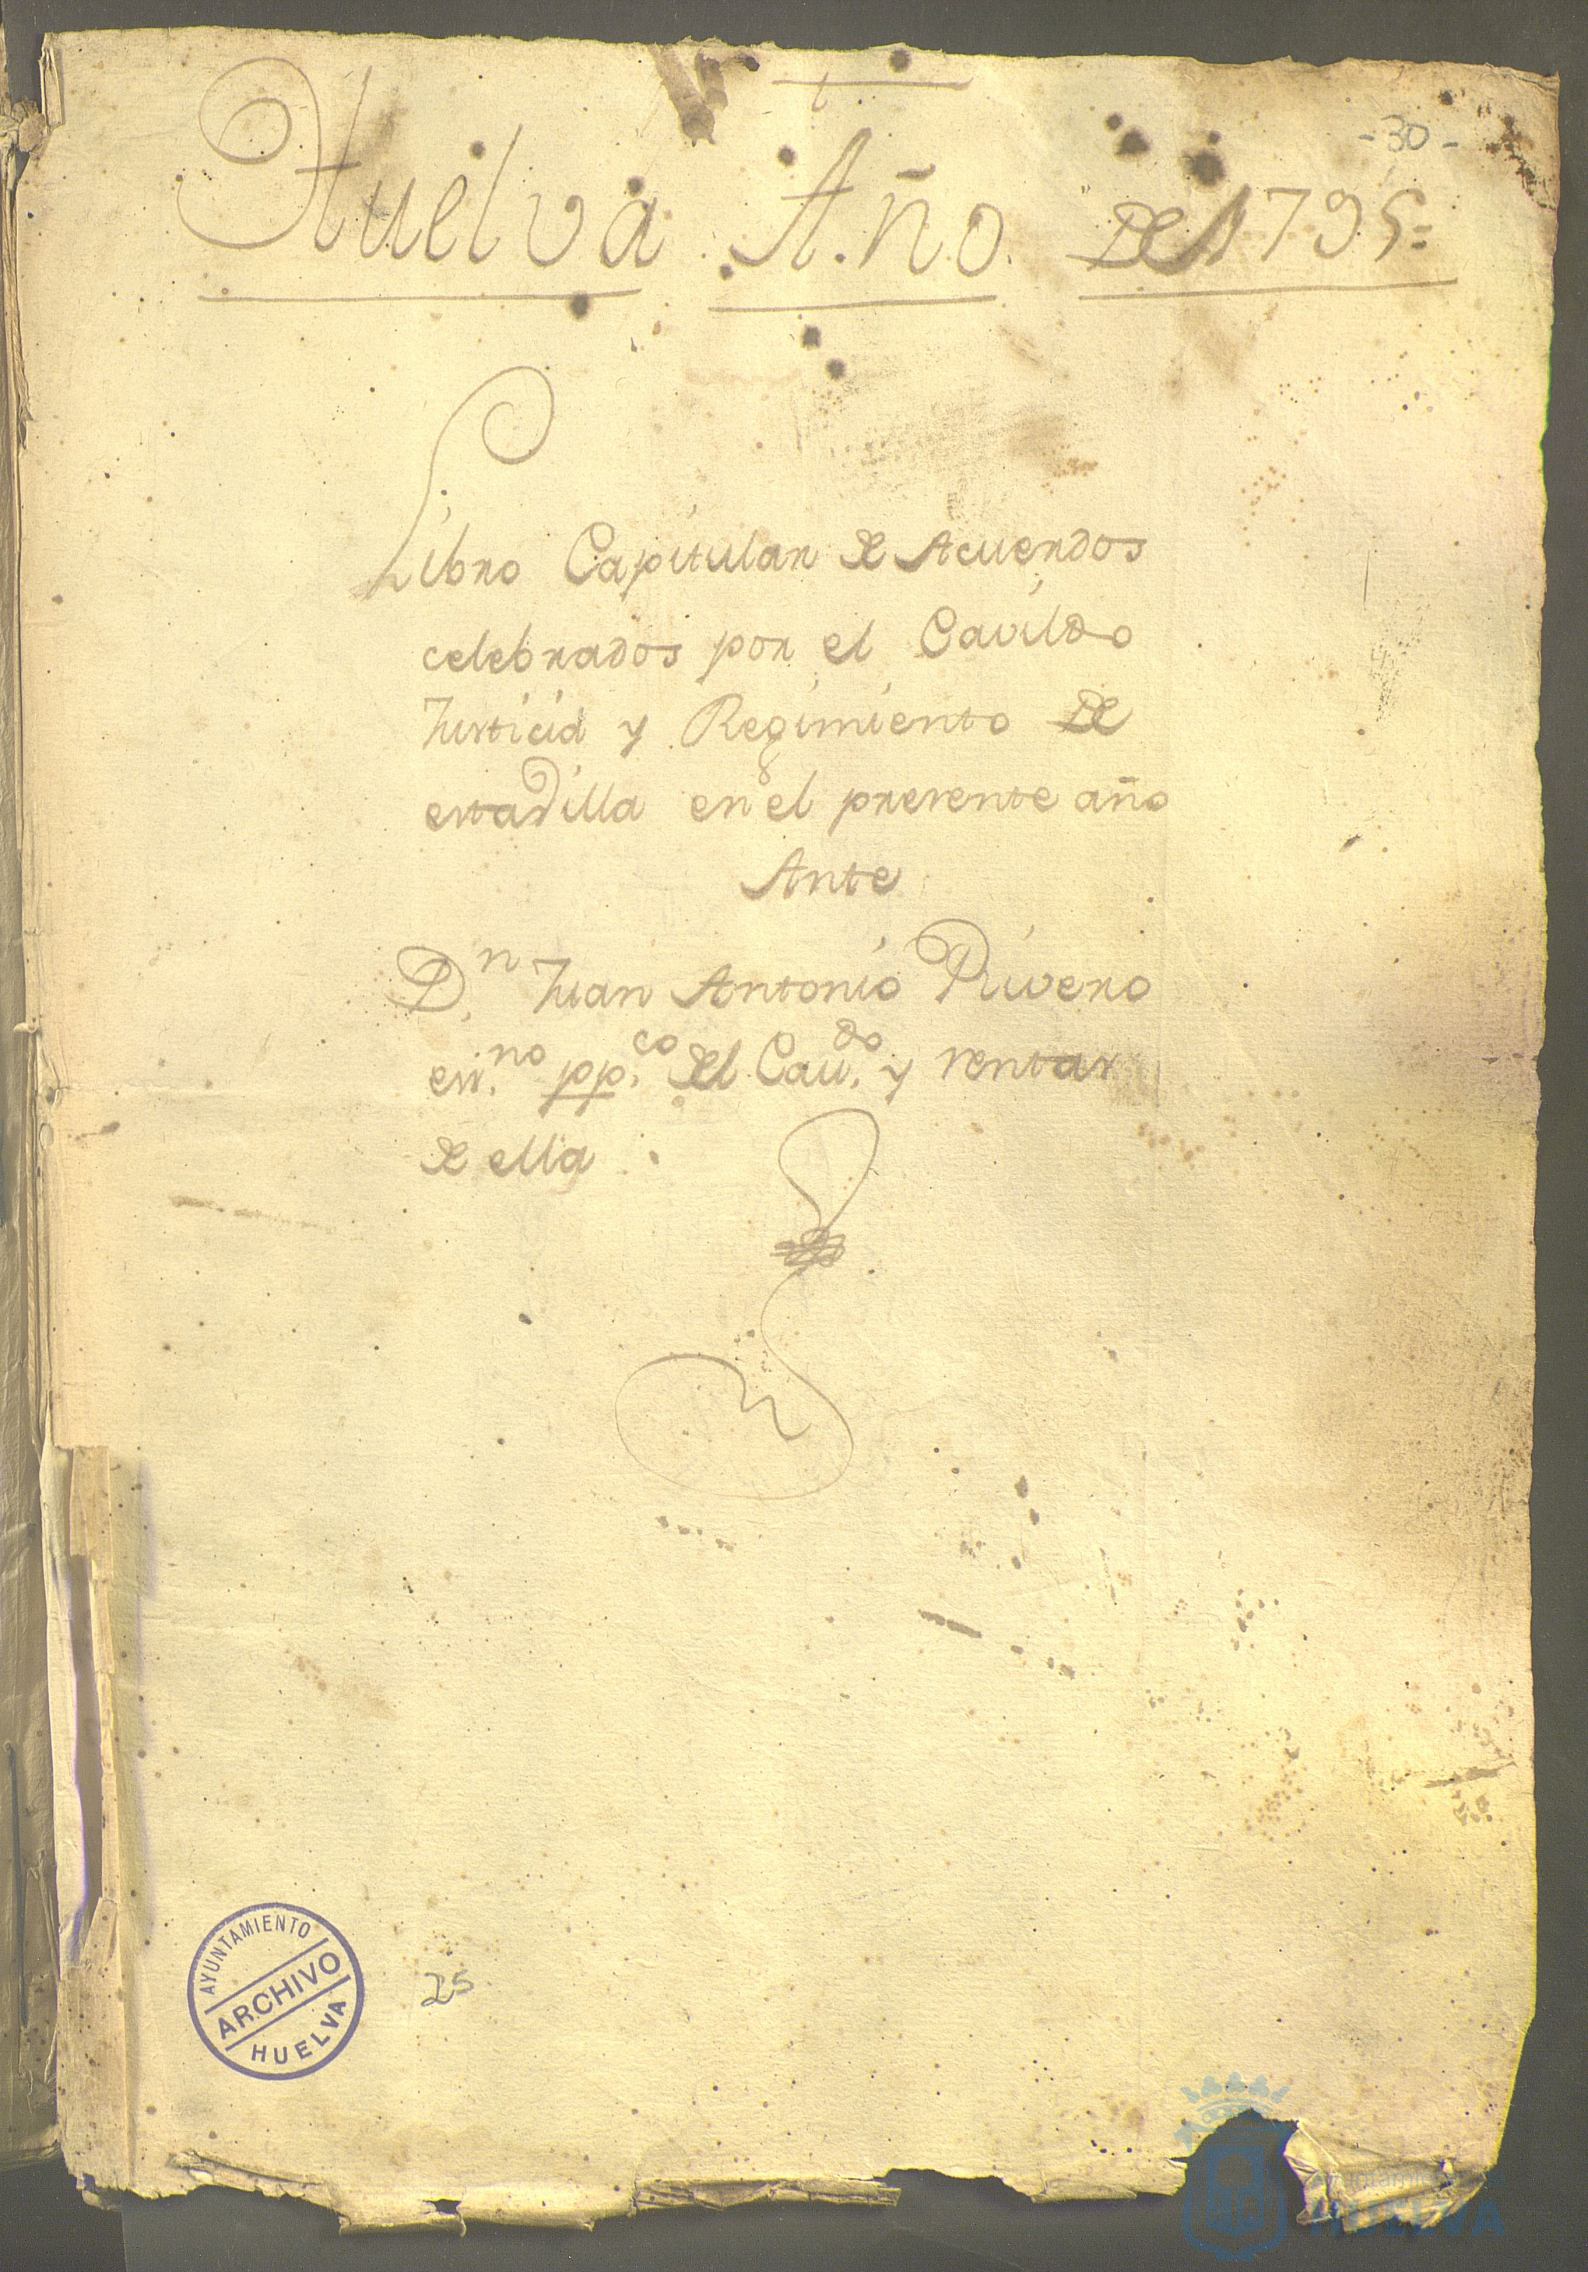 -30-
Huelva Año de 1795=
Libro Capitular de Acuerdos
celebrados por el Cavildo
Justicia y Regimiento de
esta Villa en el presente año
Ante
D.n Juan Antonio Rivero
ess.no pp.co del Cav.do y rentas
de ella.
AYUNTAMIENTO
ARCHIVO
HUELVA
25
Ayuntamiento de
HUELVA